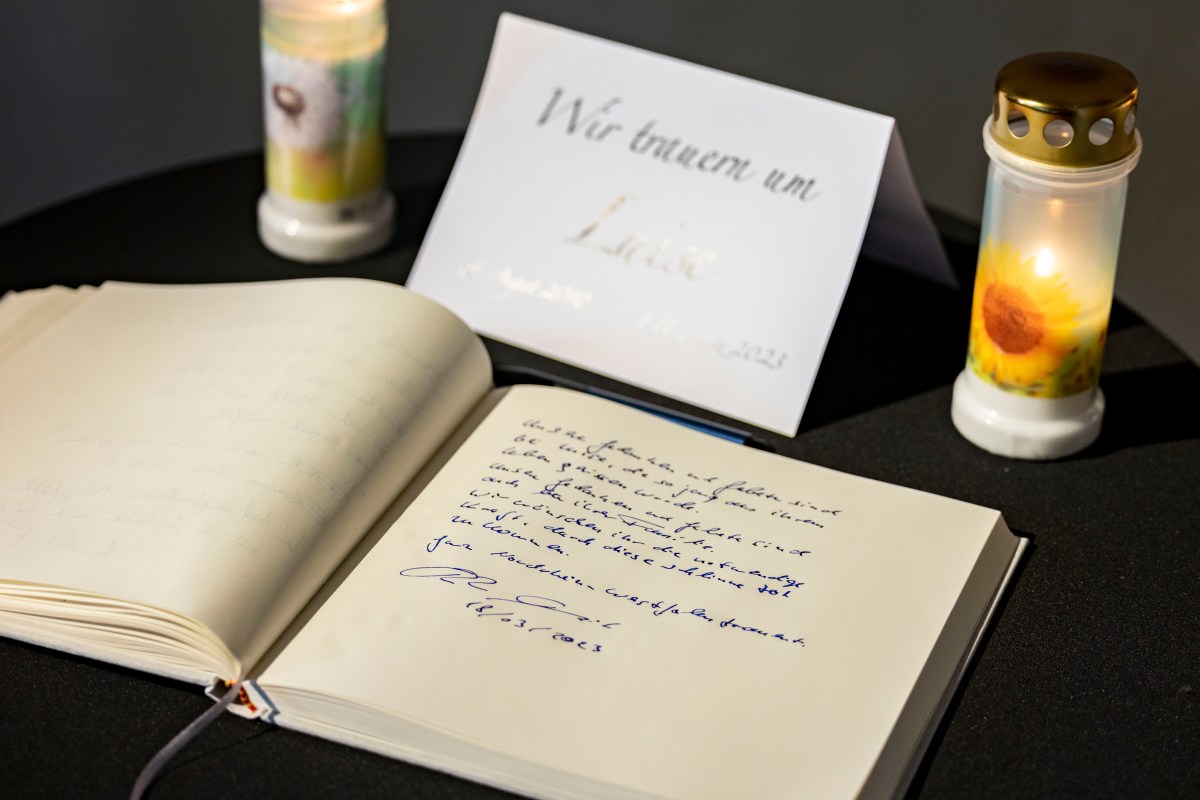 Wir trauern um
Luise
2023
Unsere Gedanken und Gebete sind
bei Luise, die so jung aus ihrem
Leben gerissen wurde.
Unsere Gedanken und Gebete sind
auch bei ihrer Familie.
Wir wünschen ihr die notwendige
Kraft, durch diese schlimme Zeit
zu kommen.
Ganz Nordrhein-Westfalen trauert.
18/03/2023